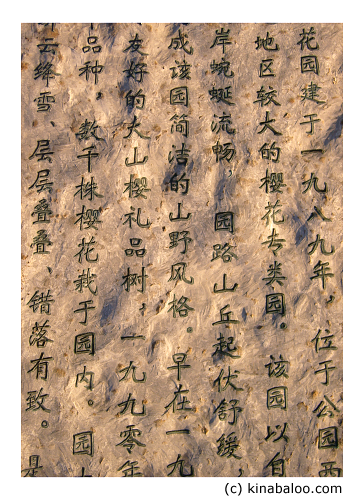 花园建于一九八九年，位于公园西
地区较大的樱花专类园。该园以自
岸蜿蜒流畅，园路山丘起伏舒缓，
成该园简洁的山野风格。早在一九
友好的大山樱礼品树，一九九零年
品种，数千株樱花栽于园内。园
云绛雪、层层叠叠、错落有致。是
(c) kinabaloo.com